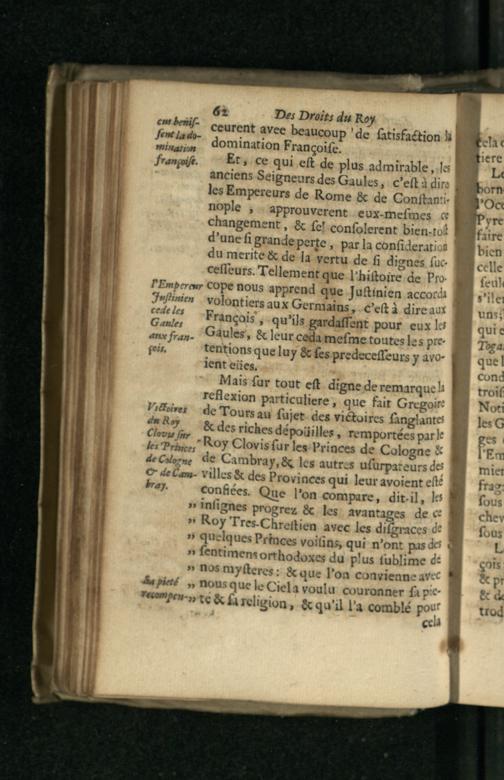 62 Des Droits du Roy
ceurent avec beaucoup de satisfaction la
domination Françoise.
Et, ce qui est de plus admirable, les
anciens Seigneurs des Gaules, c'est à dire
les Empereurs de Rome & de Constanti-
nople, approuverent eux-mesmes ce
changement, & se consolerent bien-tost
d'une si grande perte, par la consideration
du merite & de la vertu de si dignes suc-
cesseurs. Tellement que l'histoire de Pro-
cope nous apprend que Justinien accorda
volontiers aux Germains, c'est à dire aux
François, qu'ils gardassent pour eux les
Gaules, & leur ceda mesme toutes les pre-
tentions que luy & ses predecesseurs y avo-
ient eües.
Mais sur tout est digne de remarque la
reflexion particuliere, que fait Gregoire
de Tours au sujet des victoires sanglantes
& des riches dépoüilles, remportées par le
Roy Clovis sur les Princes de Cologne &
de Cambray, & les autres usurpateurs des
villes & des Provinces qui leur avoient esté
confiées. Que l'on compare, dit-il, les
" insignes progrez & les avantages de ce
" Roy Tres-Chrestien avec les disgraces de
" quelques Princes voisins, qui n'ont pas des
" sentimens orthodoxes du plus sublime de
" nos mysteres: & que l'on convienne avec
" nous que le Ciel a voulu couronner sa pie-
" té & sa religion, & qu'il l'a comblé pour
cela
ent benis-
sent la do-
mination
françoise.
l'Empereur
Justinien
cede les
Gaules
aux fran-
çois.
Victoires
du Roy
Clovis sur
les Princes
de Cologne
& de Cam-
bray.
Sa pieté
recompen-
cela
tiere
Le
born
l'Oc
Pyre
faire
bien
celle
seul
s'ile
uns;
qui e
Toga
que l
cond
trois
Noti
les G
ges
l'Em
mier
frag
sous
chev
sous
L
çois
& pr
& de
trod